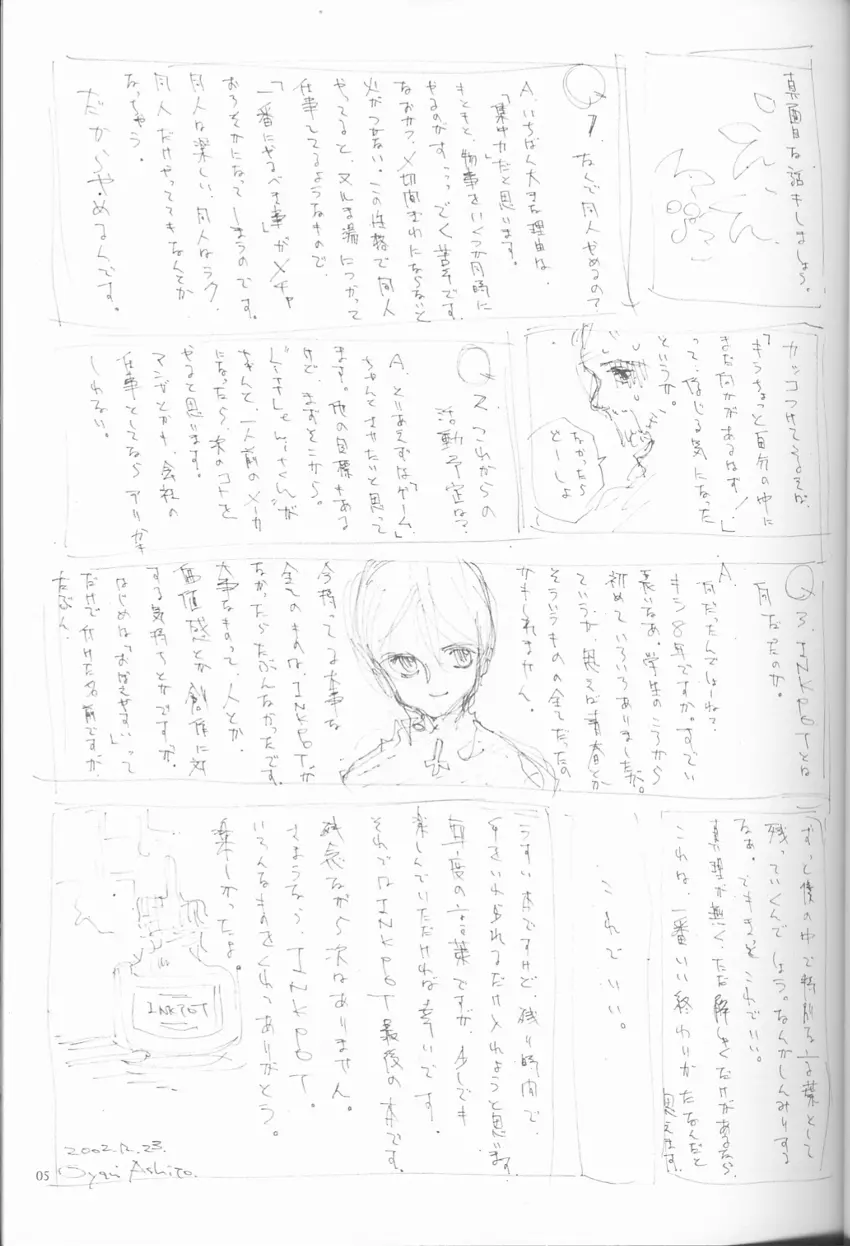 真面目な話をしましょう。
Q1. なんで同人やめるの?
A. いちばん大きな理由は、
「集中力」だと思います。
もともと、物事をいくつか同時に
やるのがすっっごく苦手です。
なおかつ、〆切間ぎわにならないと
火がつかない。この性格で同人
やってると、ヌルま湯につかって
仕事してるようなもので、
「一番にやるべき事」がメチャ
おろそかになってしまうのです。
同人は楽しい、同人はラク、
同人だけやってできなんとか
なっちゃう。
だからやめるんです。
カッコつけてるそぶり
「もうちょっと自分の中に
まだ何かがあるはず!」
って、信じる気になった
というか。
なかったら
どーしよ
Q2. これからの
活動予定は?
A. とりあえずは「ゲーム」
ちゃんとさせたいと思って
ます。他の目標もある
けど、まずそこから。
ちゃんと、一人前のメーカ
になったら、次のコトを
やると思います。
マンガとかも、会社の
仕事としてならアリかも
しれない。
Q3. INKPOTとは
何だったのか。
A.
何だったんでしょーねぇ?
もう8年ですか。すごい
長いなあ。学生のころから
初めていろいろありましたが。
ていうか、思えば青春とか
そういうものの全てだったの
かもしれません。
今持ってる大事な
全てのものは、INKPOTが
なかったらたぶんなかったです。
大事なものって、人とか、
価値感とか創作に対
する気持ちとかですが。
はじめは「おぼえやすい」って
だけで付けた名前ですが、
たぶん、
ずっと僕の中で特別な言葉として
残っていくんでしょう。なんかしんみりする
なぁ。でもきっとこれでいい。
真理が無く、ただ解しくだけがあるなら、
これは、一番いい終わりかたなんだと
思えます。
これでいい。
うすい本ですけど、残り時間で、
手をいれられるだけ入れようと思います。
毎度の言葉ですが、少しでも
楽しんでいただければ幸いです。
それではINKPOT最後の本です。
残念ながら次はありません。
さようなら、INKPOT。
いろんなものをくれてありがとう。
楽しかったよ。
INKPOT
2002.12.23.
Oyari Ashito.
05